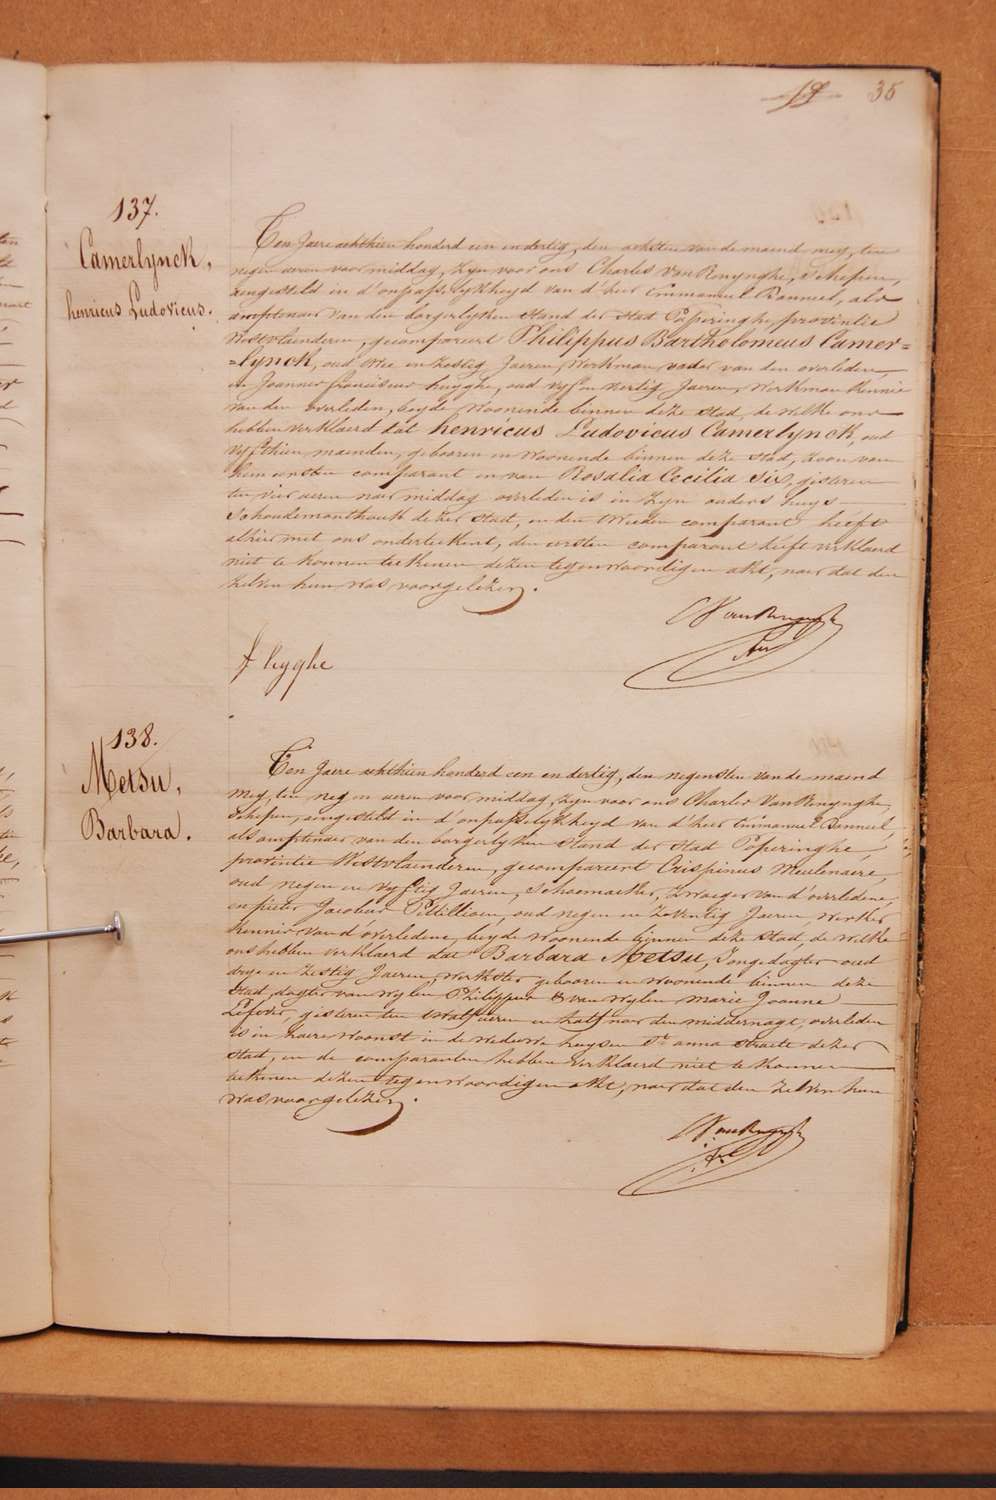 19 35
137.
Camerlynck,
henricus Ludovicus.
Ten Jaere achthien honderd een en dertig, den achsten van de maend mey, ten
negen uren voormiddag, zyn voor ons Charles Van Renynghe, schepen,
aengesteld in d'onpasselykheyd van d'heer Emmanuel Banneel, als
amptenaer van den borgerlyken stand der stad Poperinghe, provintie
Westvlaenderen, gecompareert Philippus Bartholomeus Camer=
=lynck, oud twee en zestig Jaeren, werkman, vader van den overleden,
en Joannes franciscus huyghe, oud vyf en veertig Jaeren, werkman kennis
van den overleden, beyde woonende binnen deze stad, de welke ons
hebben verklaerd dat henricus Ludovicus Camerlynck, oud
vyfthien maenden, gebooren en woonende binnen deze stad, zoon van
hem eersten comparant en van Rosalia Cecilia Six, gisteren
ten vier uren naer middag overleden is in zyn ouders huys
Schoudemonthoek dezer stad, en den tweeden comparant heeft
alhier met ons onderteekent, den eersten comparant heeft verklaerd
niet te konnen teekenen dezen tegenwoordigen akt, naer dat den
zelven hun was voorgelezen.
C Van Renynghe
f huyghe
138.
Metsu,
Barbara.
Ten Jaere achthien honderd een en dertig, den negensten van de maend
mey, ten negen uren voormiddag, zyn voor ons Charles Van Renynghe,
schepen, aengesteld in d'onpasselykheyd van d'heer Emmanuel Banneel,
als amptenaer van den borgerlyken stand der stad Poperinghe,
provintie Westvlaenderen, gecompareert Crispinus Meulenaere,
oud negen en vyftig Jaeren, schoemaeker, zwaeger van d'overledene,
en pieter Jacobus oud negen en zeventig Jaeren, werker
kennis van d'overledene, beyde woonende binnen deze stad, de welke
ons hebben verklaerd dat Barbara Metsu, Jongedogter oud
drye en zestig Jaeren, werkster gebooren en woonende binnen deze
stad, dogter van wylen Philippus & van wylen marie Joanne
Lefever, gisteren ten twalf ueren en half naer den middernagt, overleden
is in haere woonst in de weduwe huysen St anna straete dezer
stad, en de comparanten hebben verklaerd niet te konnen
teekenen dezen tegenwoordigen akt, naer dat den zelven hun
was voorgelezen.
C Van Renynghe